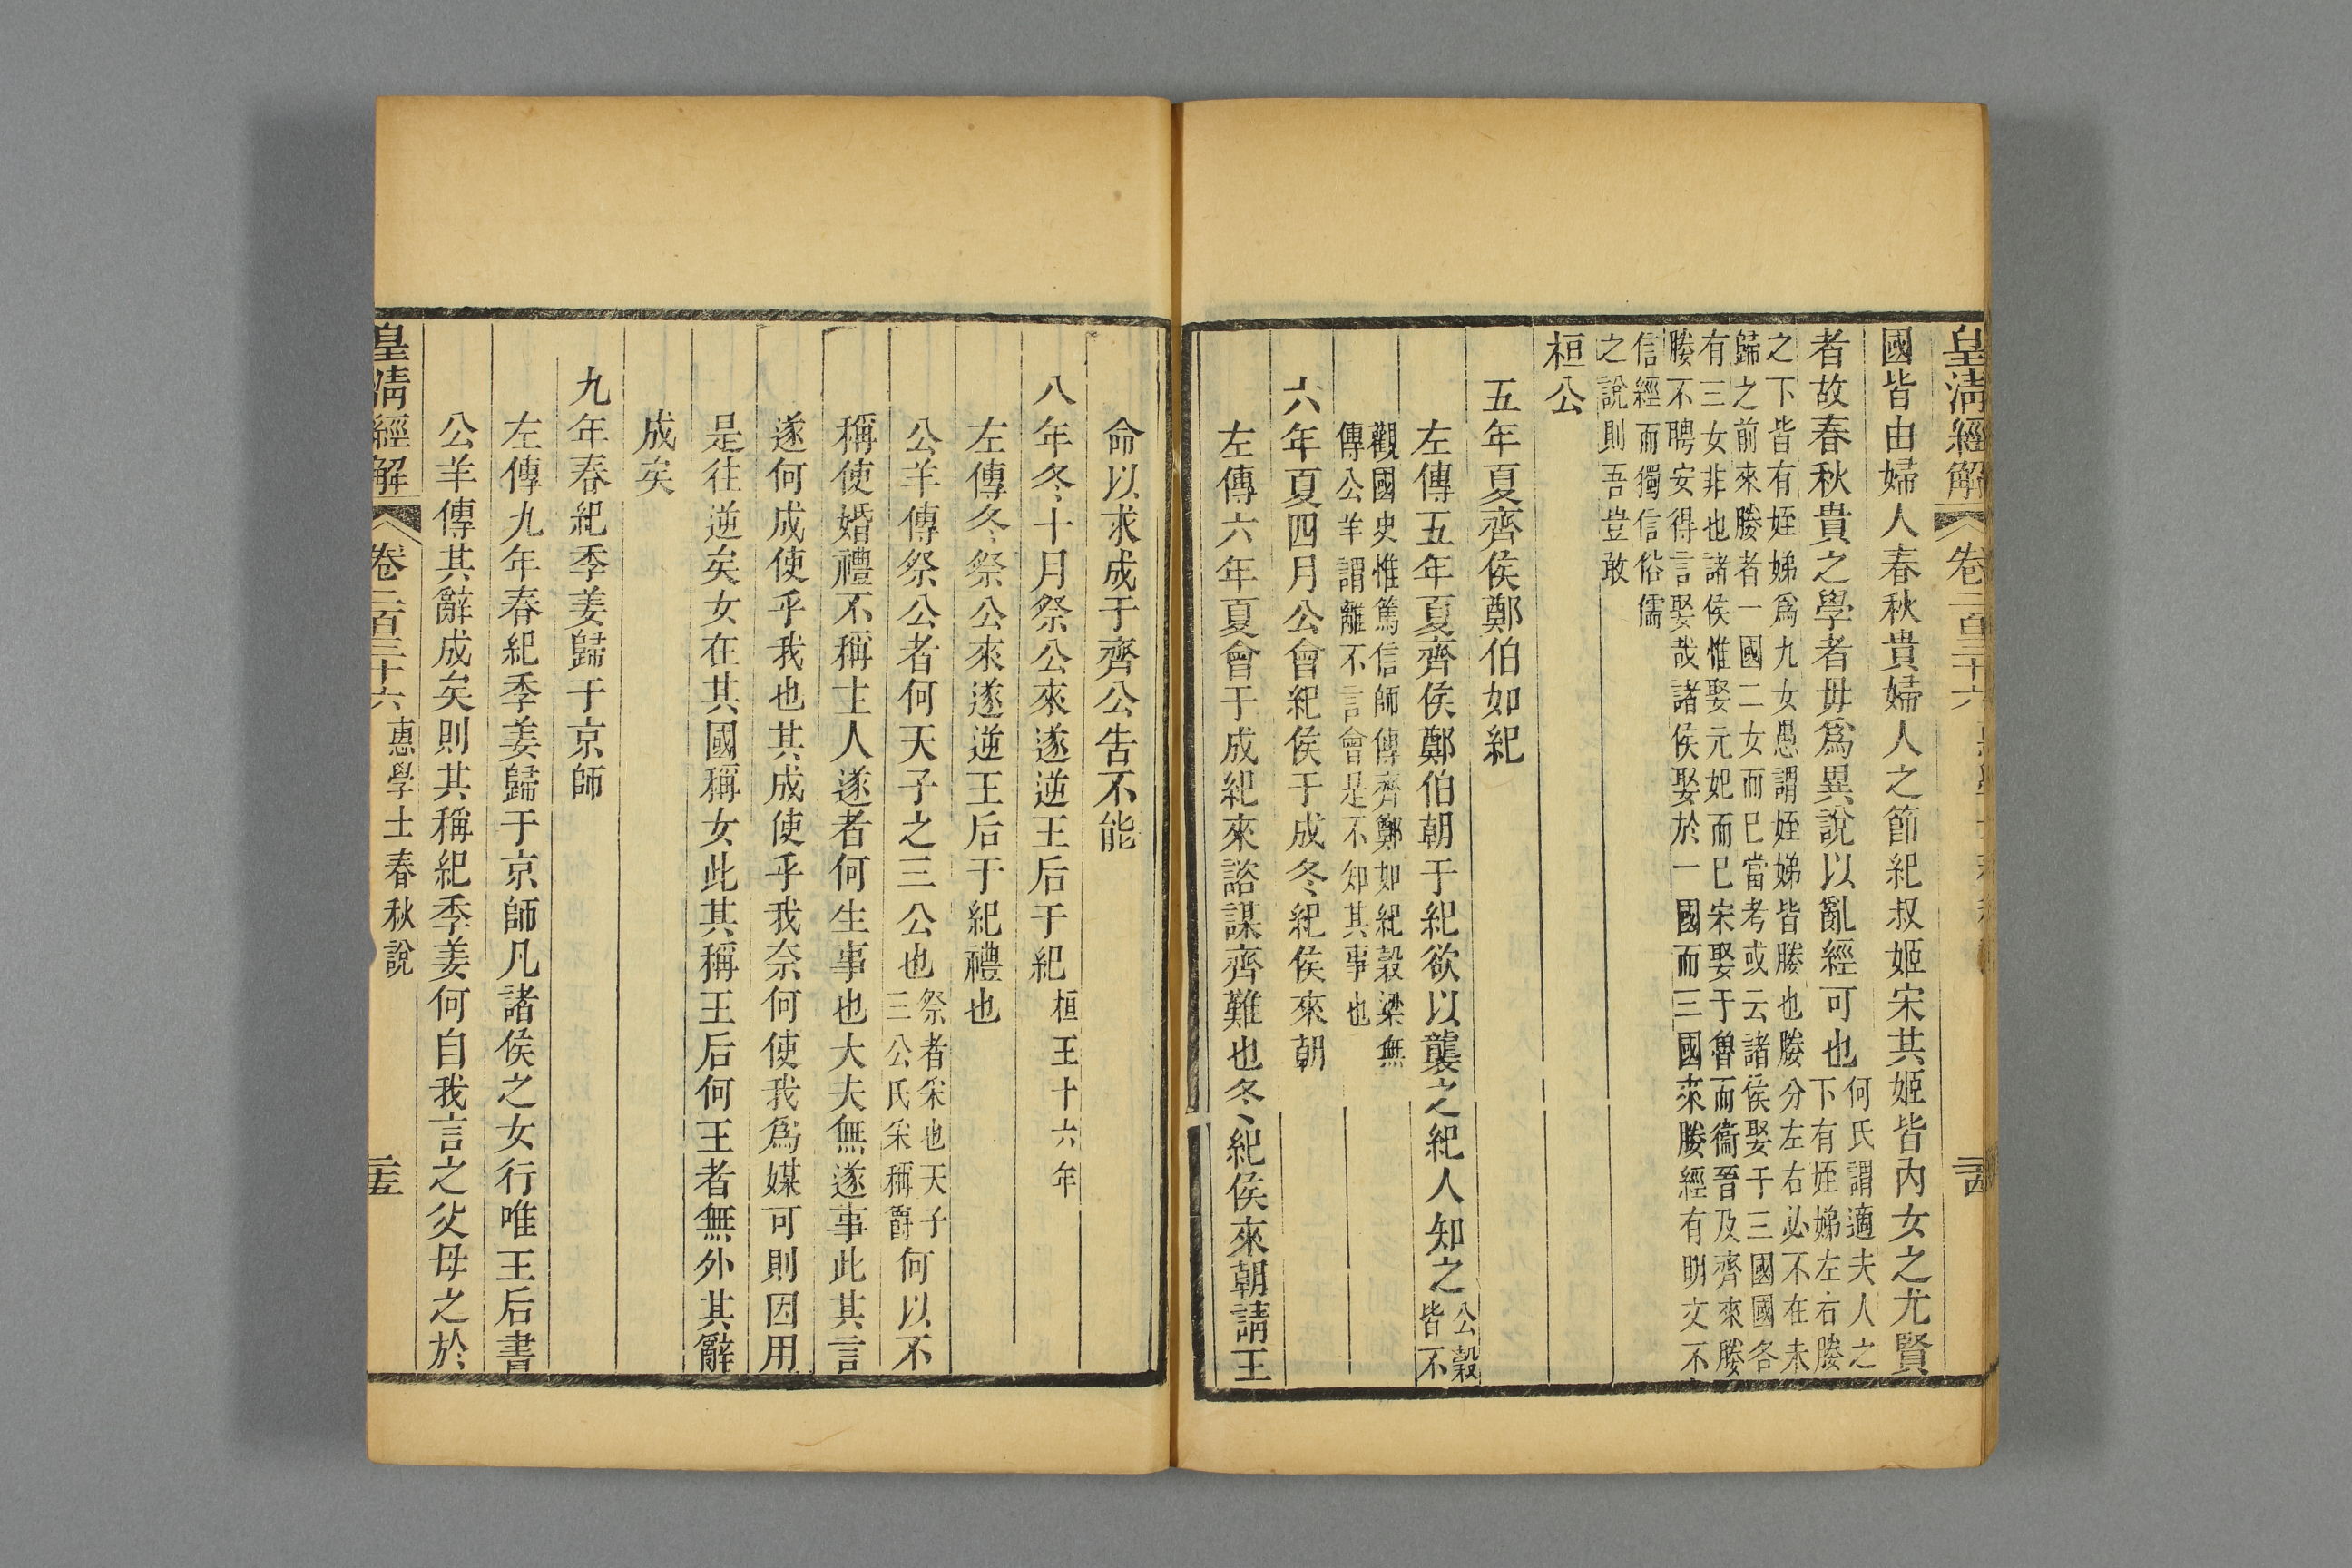 皇清經解
卷二百三十六
國皆由婦人春秋貴婦人之節紀叔姬宋其姬皆內女之尤賢
者故春秋貴之學者毋爲異說以亂經可也何氏謂適夫人之
下有姪娣左右媵
之下皆有姪娣爲九女愚謂姪娣皆媵也媵分左右必不在未
歸之前來媵者一國二女而已當考或云諸侯娶于三國國各
有三女非也諸侯惟娶元妃而已宋娶于魯而衞晉及齊來媵
媵不聘安得言娶哉諸侯娶於一國而三國來媵經有明文不
信經而獨信俗儒
之說則吾豈敢
桓公
五年夏齊侯鄭伯如紀
左傳五年夏齊侯鄭伯朝于紀欲以襲之紀人知之公穀
皆不
觀國史惟篤信師傳齊鄭如紀穀梁無
傳公羊謂離不言會是不知其事也
六年夏四月公會紀侯于成冬紀侯來朝
左傳六年夏會于成紀來諮謀齊難也冬紀侯來朝請王
命以求成于齊公告不能
八年冬十月祭公來遂逆王后于紀桓王十六年
左傳冬祭公來遂逆王后于紀禮也
公羊傳祭公者何天子之三公也祭者采也天子
三公氏采稱爵何以不
稱使婚禮不稱主人遂者何生事也大夫無遂事此其言
遂何成使乎我也其成使乎我奈何使我爲媒可則因用
是往逆矣女在其國稱女此其稱王后何王者無外其辭
成矣
九年春紀季姜歸于京師
左傳九年春紀季姜歸于京師凡諸侯之女行唯王后書
公羊傳其辭成矣則其稱紀季姜何自我言之父母之於
皇清經解
卷二百三十六
惠學士春秋說
二五